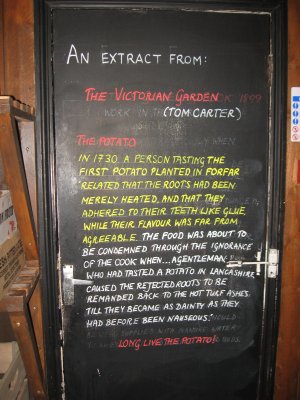 AN EXTRACT FROM:
THE VICTORIAN GARDEN
(TOM CARTER)
THE POTATO
IN 1730 A PERSON TASTING THE
FIRST POTATO PLANTED IN FORFAR
'RELATED THAT THE ROOTS HAD BEEN
MERELY HEATED, AND THAT THEY
ADHERED TO THEIR TEETH LIKE GLUE,
WHILE THEIR FLAVOUR WAS FAR FROM
AGREEABLE. THE FOOD WAS ABOUT TO
BE CONDEMNED THROUGH THE IGNORANCE
OF THE COOK WHEN... A GENTLEMAN
WHO HAD TASTED A POTATO IN LANCASHIRE
CAUSED THE REJECTED ROOTS TO BE
REMANDED BACK TO THE HOT TURF ASHES,
TILL THEY BECAME AS DAINTY AS THEY
HAD BEFORE BEEN NAUSEOUS.'
LONG LIVE THE POTATO!